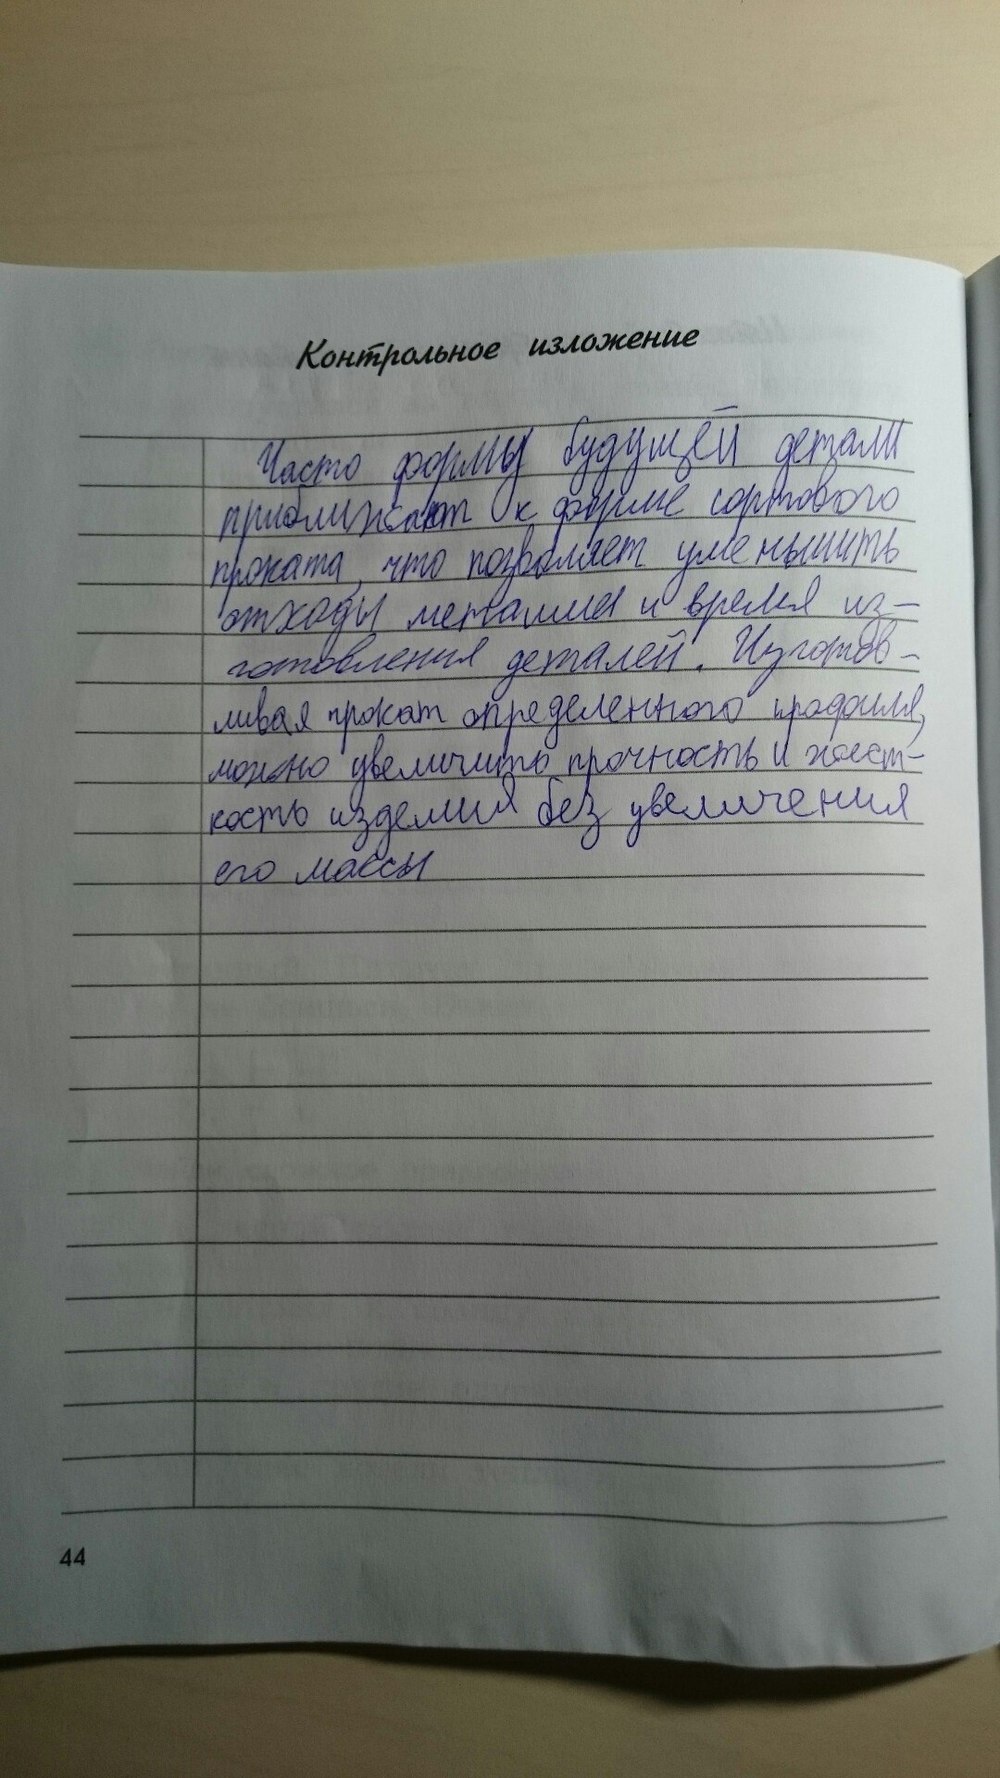 Контрольное изложение
Часто формы будущей детали
приближают к форме сортового
проката, что позволяет уменьшить
отходы металла и время из-
готовления деталей. Изготов-
ливая прокат определенного профиля,
можно увеличить прочность и жест-
кость изделия без увеличения
его массы
44